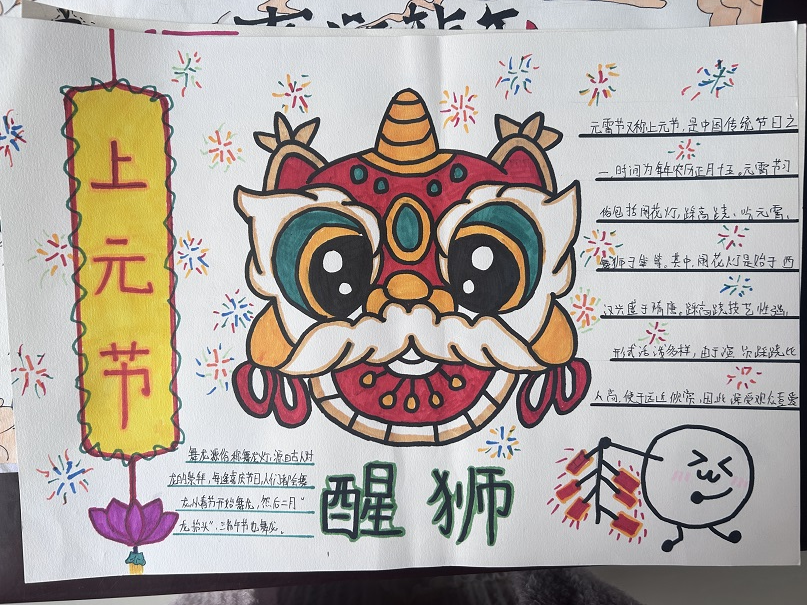 上元节
元宵节又称上元节,是中国传统节日之
一,时间为每年农历正月十五。元宵节习
俗包括闹花灯,踩高跷、吃元宵、
舞狮子等等。其中,闹花灯是始于西
汉兴盛于隋唐。踩高跷技艺性强,
形式活泼多样,由于演员踩跷比
人高,便于远近欣赏,因此深受观众喜爱
舞龙俗称舞龙灯,源自古人对
龙的崇拜,每逢喜庆节日,人们都会舞
龙,从春节开始舞龙,然后二月“
龙抬头”,端午节也舞龙。
醒狮